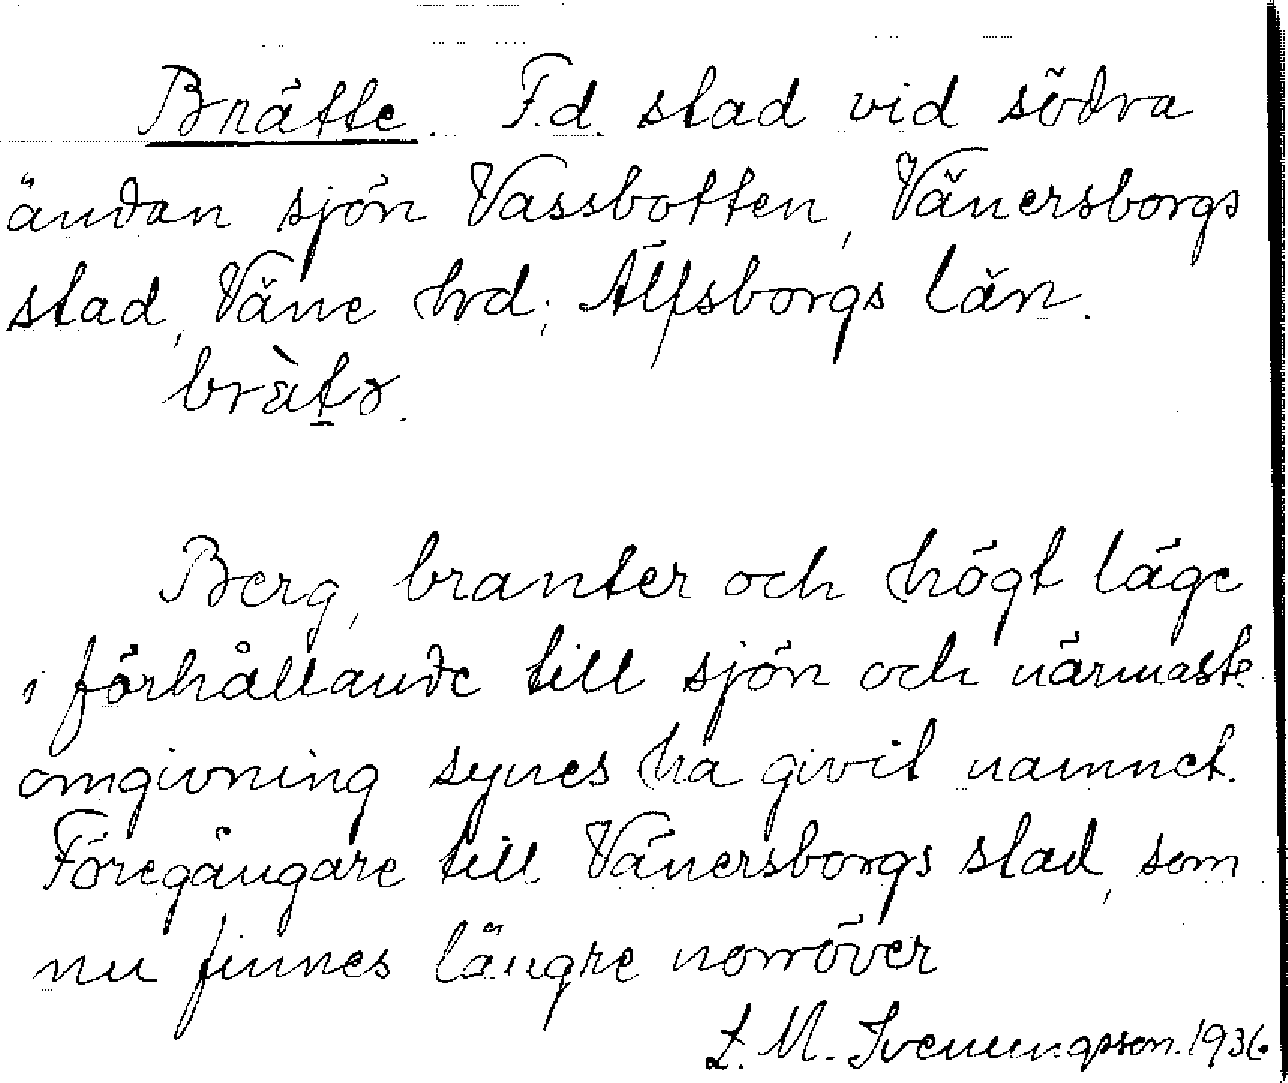 Brätte. F.d. stad vid södra
ändan sjön Vassbotten, Vänersborgs
stad, Väne hrd; Älfsborgs län.
Berg, branter och högt läge
i förhållande till sjön och närmaste
omgivning synes ha givit namnet.
Föregångare till Vänersborgs stad, som
nu finnes längre norröver
L. M. Svenungsson. 1936.